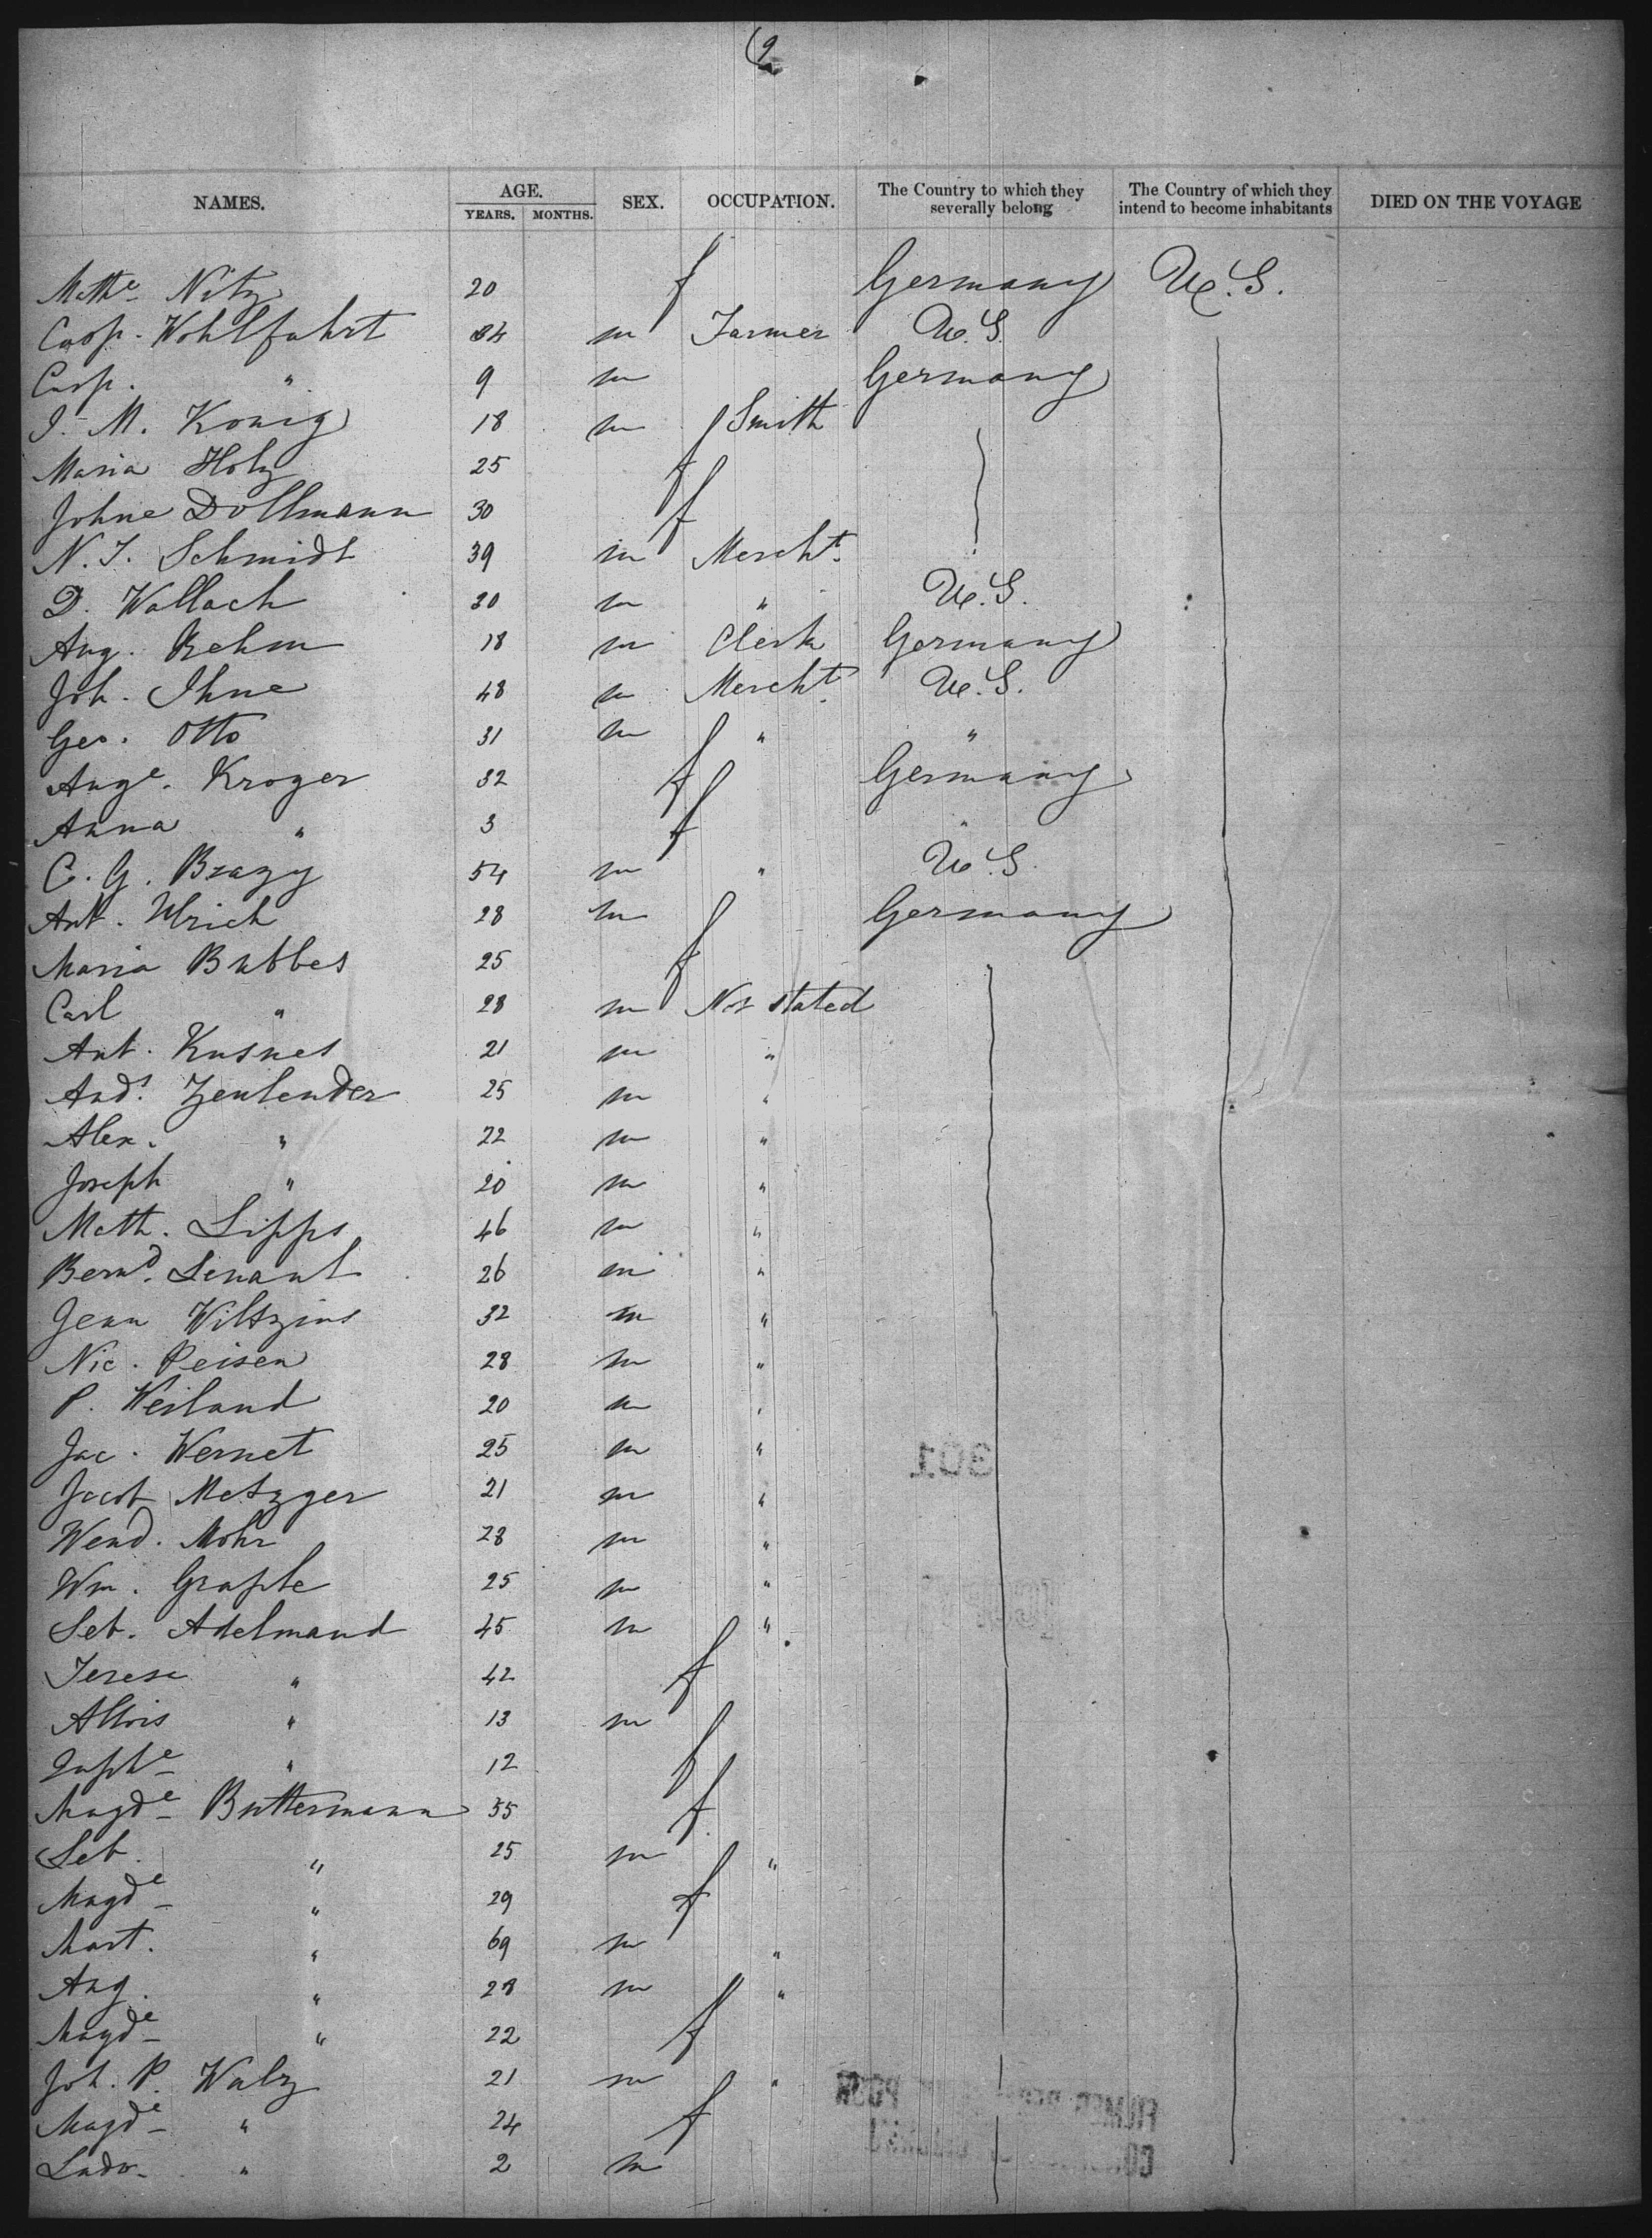 9
NAMES. AGE. SEX. OCCUPATION. The Country to which they severally belong The Country of which they intend to become inhabitants DIED ON THE VOYAGE
YEARS. MONTHS.
Mathe Nitz 20 f Germany U.S.
Casp. Wohlfahrt 34 m Farmer U.S.
Casp. " 9 m Germany
J. M. Konig 18 m Smith
Maria Holz 25 f
Johne Dollmann 30 f
N. J. Schmidt 39 m Mercht.
D. Wallach 30 m " U.S.
Aug. Rehm 18 m Clerk Germany
Joh. Ihne 48 m Mercht. U.S.
Geo. Otto 31 m " "
Auge. Kroger 32 f Germany
Anna " 3 f "
C. G. Brazy 54 m " U.S.
Ant. Ulrich 28 m Germany
Maria Bubbes 25 f
Carl " 28 m Not stated
Ant. Kusnes 21 m "
Ands. Zenlender 25 m "
Alex. " 22 m "
Joseph " 20 m "
Math. Lipps 46 m "
Bernd. Lenant 26 m "
Jean Wiltzius 32 m "
Nic. Peisen 28 m "
P. Weiland 20 m "
Jac. Wernet 25 m "
Jacob Metzger 21 m "
Wend. Mohr 28 m "
Wm. Graple 25 m "
Seb. Adelmand 45 m "
Terese " 42 f
Allois " 13 m
" 12 f
Magde Buttermann 55 f
Seb. " 25 m "
Magde " 29 f
Mart. " 69 m "
Aug. " 28 m "
Magde " 22 f
Joh. P. Walz 21 m "
Magde " 24 f
Ludw. " 2 m
301